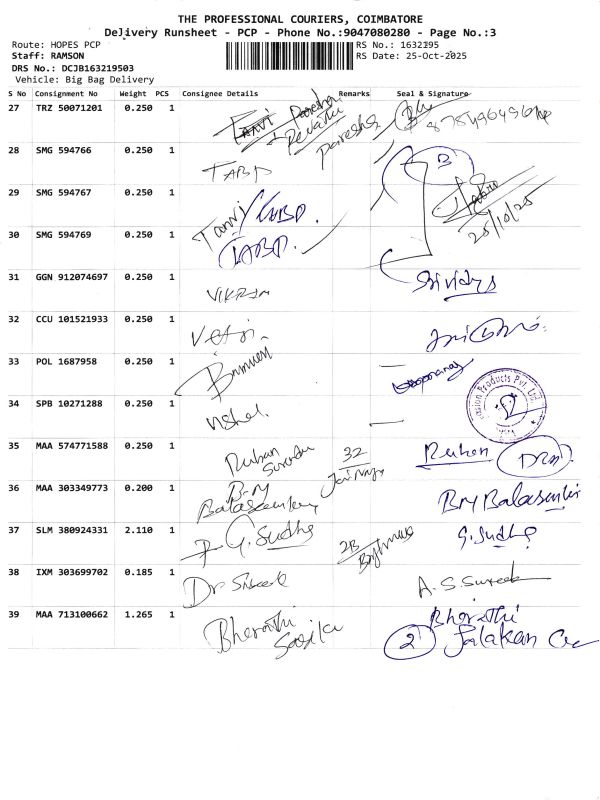 THE PROFESSIONAL COURIERS, COIMBATORE
Delivery Runsheet - PCP - Phone No.:9047080280 - Page No.:3
Route: HOPES PCP RS No.: 1632295
Staff: RAMSON RS Date: 25-Oct-2025
DRS No.: DCJB163219503
Vehicle: Big Bag Delivery
S No Consignment No Weight PCS Consignee Details Remarks Seal & Signature
27 TRZ 50071201 0.250 1 Revathi Paresha
28 SMG 594766 0.250 1 TABP B
29 SMG 594767 0.250 1 Tanvi/TABP. 25/10/25
30 SMG 594769 0.250 1 TABP.
31 GGN 912074697 0.250 1 VIKRAM Srividya
32 CCU 101521933 0.250 1 Vetri
33 POL 1687958 0.250 1
34 SPB 10271288 0.250 1 Products Pvt. Ltd.
35 MAA 574771588 0.250 1 Ruban 32 Jai Nagar Ruben
36 MAA 303349773 0.200 1 B.M Balasundar BM Balasundar
37 SLM 380924331 2.110 1 G. Sudha 2B G. Sudha
38 IXM 303699702 0.185 1 Dr. A.S.Suresh
39 MAA 713100662 1.265 1 Bharathi Sasiku Bharathi
2